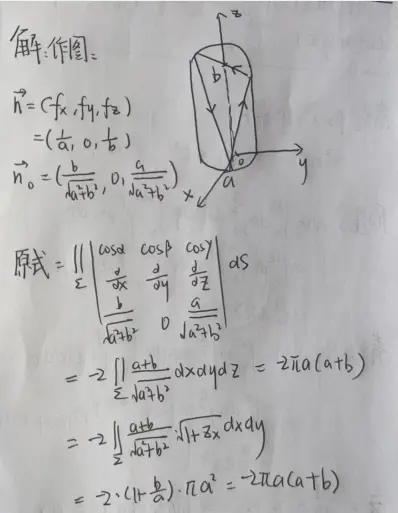 解:作图:
z
b
n⃗=(fx,fy,fz)
=(1/a,0,1/b)
o
a
y
x
n⃗₀=(b/√a²+b²,0,a/√a²+b²)
原式=∬Σ |cosα cosβ cosγ; ∂/∂x ∂/∂y ∂/∂z; b/√a²+b² 0 a/√a²+b²| dS
=-2∬Σ a+b/√a²+b² dxdydz = -2πa(a+b)
=-2∬Σ a+b/√a²+b² ·√1+Zx dxdy
=-2·(1+b/a)·πa²=-2πa(a+b)